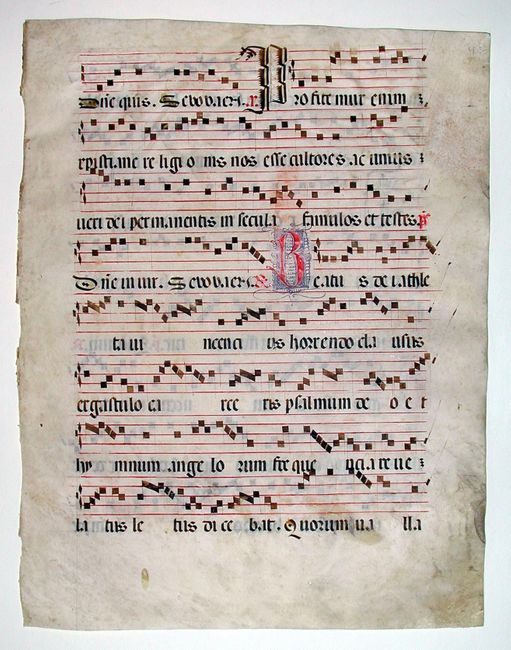 Dn̄e quis. Seuouaen. Profitemur enim
xp̄istiane religionis nos esse cultores ac unius
ueri dei permanentis in secula famulos et testes. ps
Dn̄e in uir. Seuouaen. Beatus dei athle
ta ui ncenci us horrendo cla usus
ergastulo ca rce ris psalmum de o e t
hy mnium ange lo rum fre que ncia re ue
la tus le tus di ce bat. Quorum ua lla